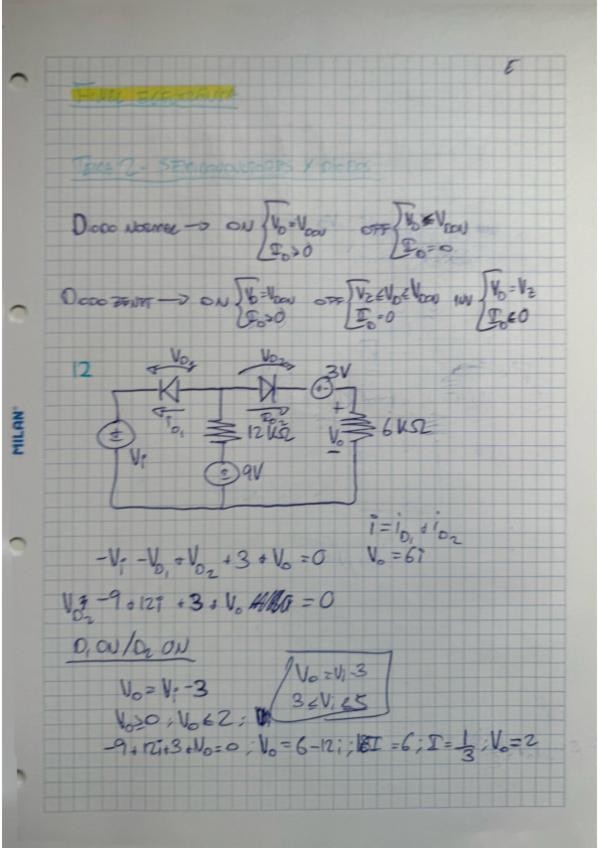 E
Tema 2 - SEMICONDUCTORES Y DIODOS
DIODO NORMAL → ON { V_D = V_DON I_D > 0 OFF { V_D ≤ V_DON I_D = 0
DIODO ZENER → ON { V_D = V_DON I_D > 0 OFF { V_Z ≤ V_D ≤ V_DON I_D = 0 INV { V_D = V_Z I_D ≤ 0
12
V_D1 V_D2 3V
i_D1 I_D2
+ V_o - 6KΩ
12KΩ
Vi
9V
MILAN
i = i_D1 + i_D2
-Vi - V_D1 + V_D2 + 3 + V_o = 0 V_o = 6i
V_D2 + -9 + 12i + 3 + V_o = 0
D_1 ON / D_2 ON
V_o = Vi - 3
V_o = Vi - 3
3 ≤ Vi ≤ 5
V_o ≥ 0 ; V_o ≤ 2 ;
-9 + 12i + 3 + V_o = 0 ; V_o = 6 - 12i ; 18I = 6 ; I = 1/3 ; V_o = 2